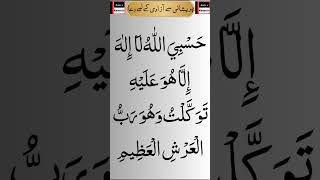 پریشانی سے آزادی کے لیے دعا
حَسْبِيَ اللّٰهُ لَآ اِلٰهَ
اِلَّا هُوَ عَلَيْهِ
تَوَكَّلْتُ وَهُوَ رَبُّ
الْعَرْشِ الْعَظِيْمِ